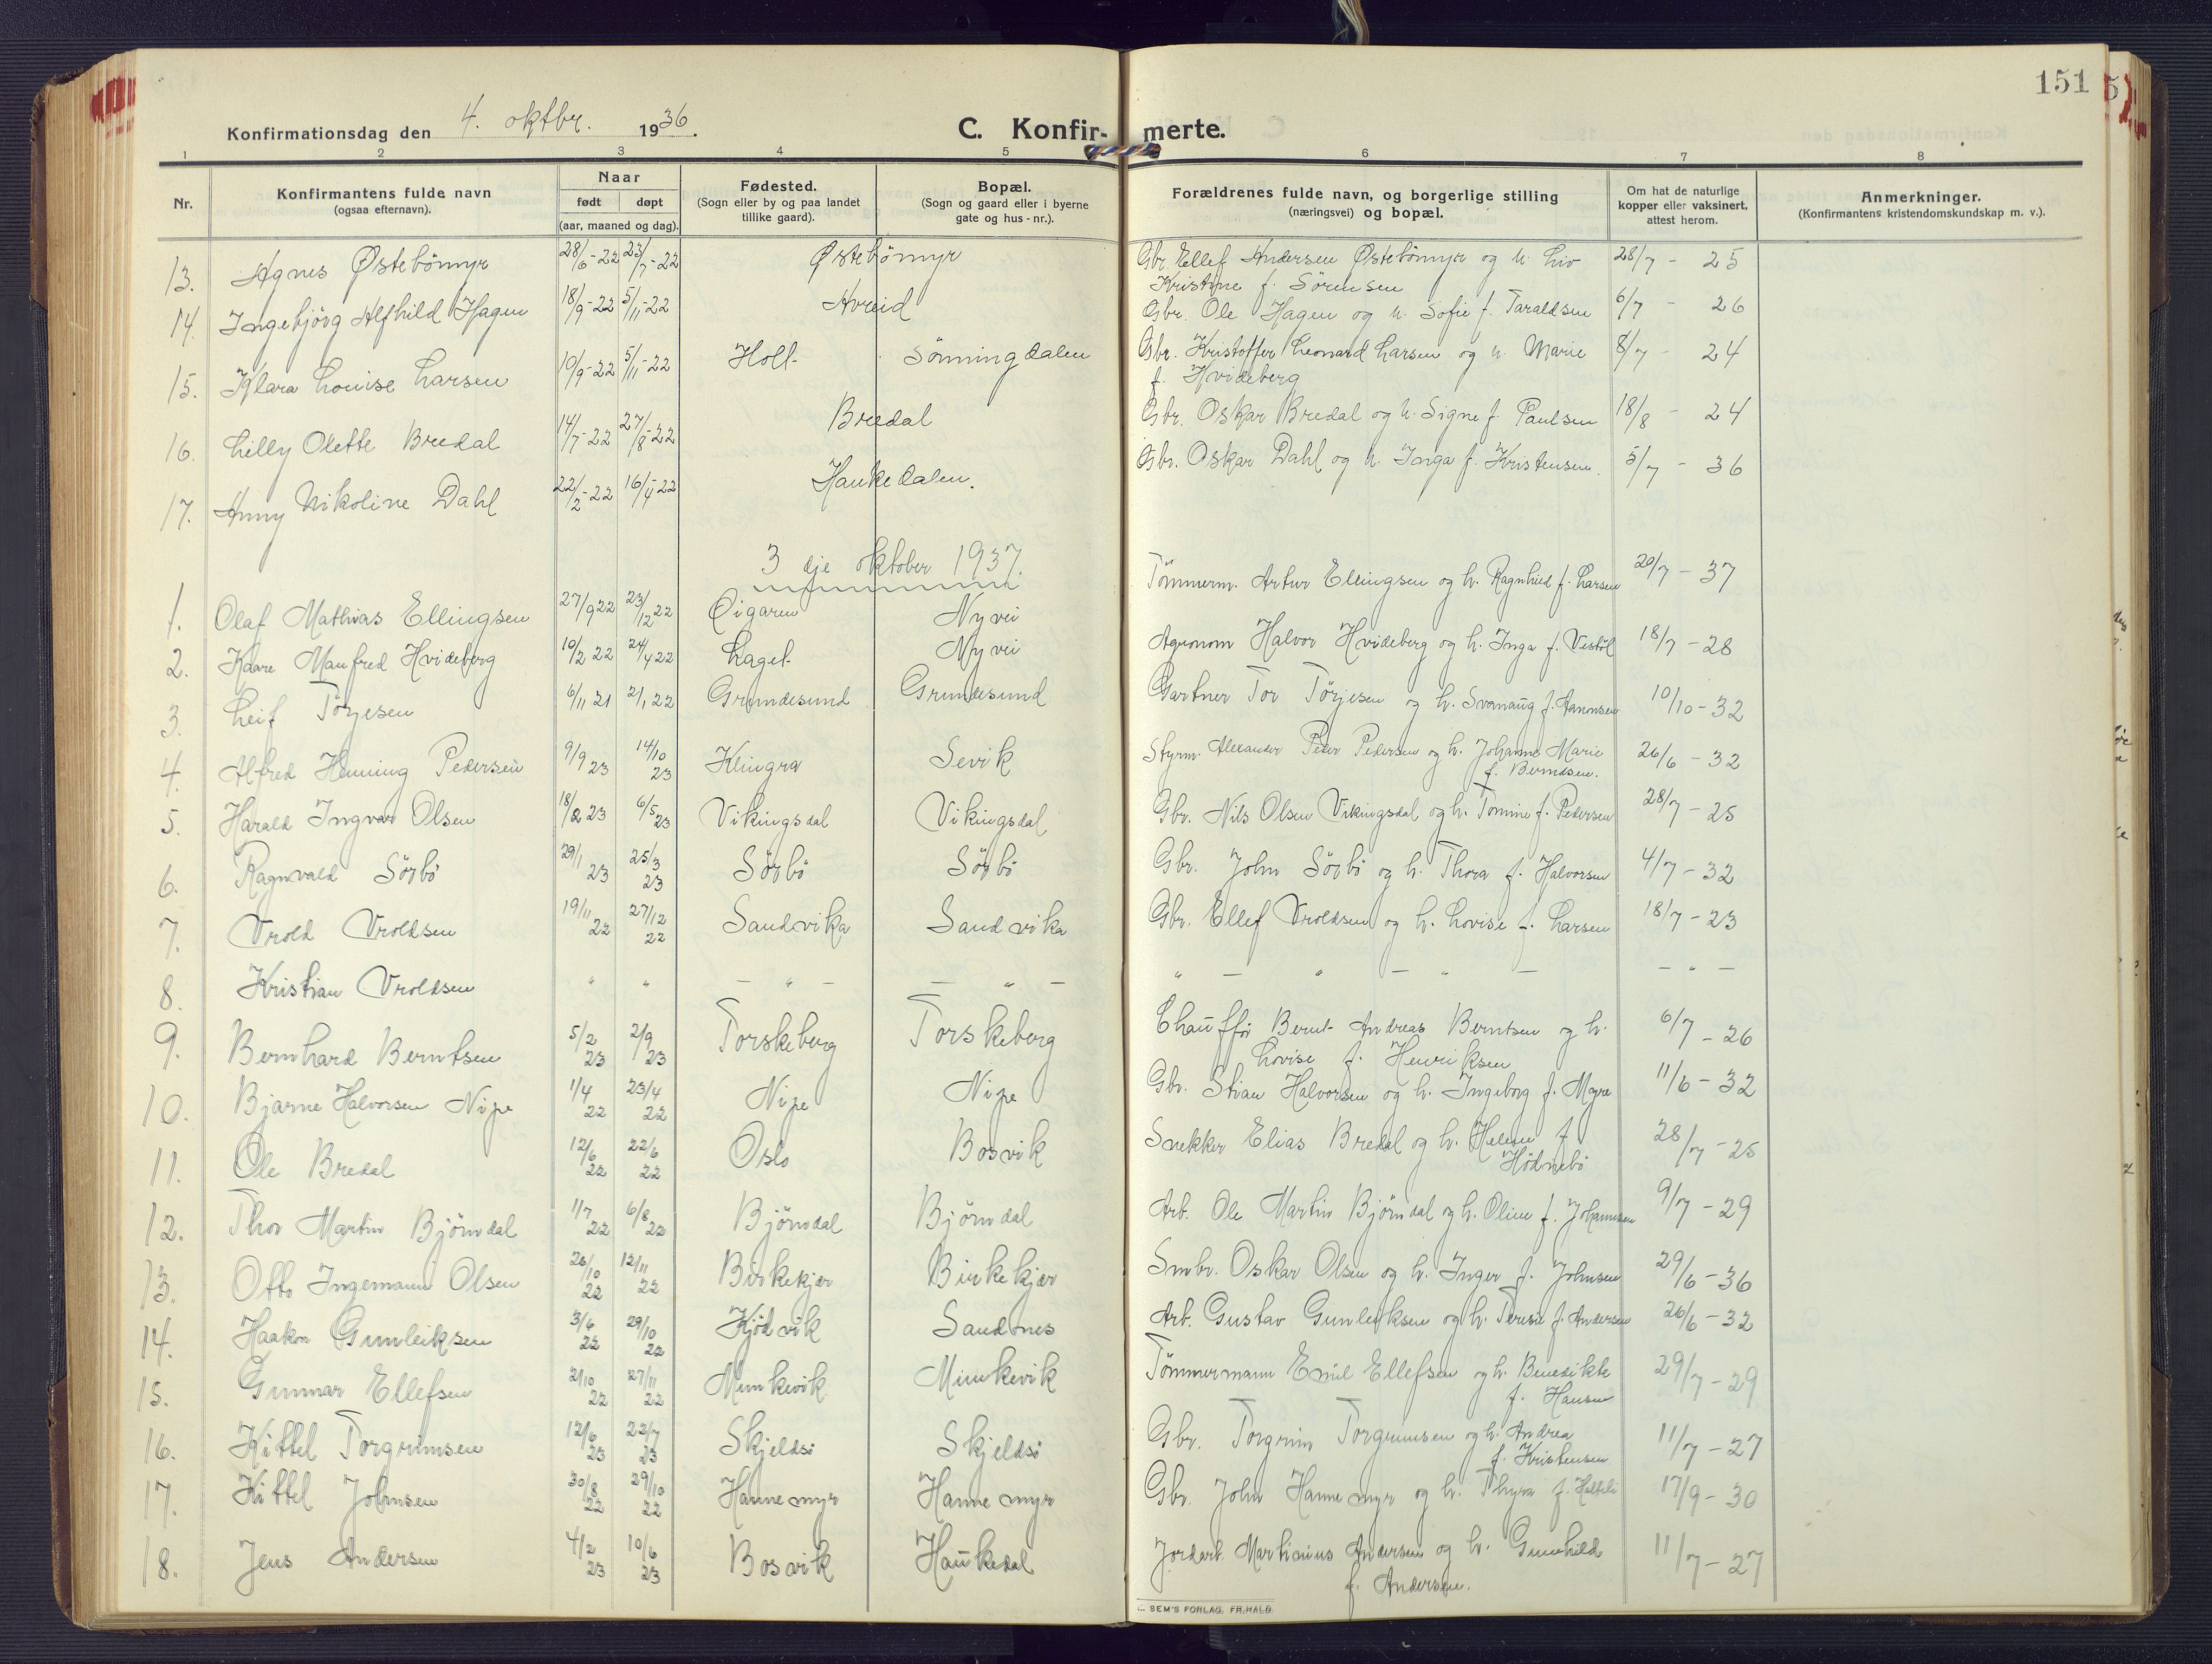 151
Konfirmationsdag den 4. oktbr. 1936.
C. Konfir- merte.
1 2 3 4 5 6 7 8
Nr.
Konfirmantens fulde navn
(ogsaa efternavn).
Naar
født døpt
(aar, maaned og dag).
Fødested.
(Sogn eller by og paa landet
tillike gaard).
Bopæl.
(Sogn og gaard eller i byerne
gate og hus - nr.).
Forældrenes fulde navn, og borgerlige stilling
(næringsvei) og bopæl.
Om hat de naturlige
kopper eller vaksinert,
attest herom.
Anmerkninger.
(Konfirmantens kristendomskundskap m. v.).
13. Agnes Østebömyr 28/6-22 23/7-22 Østebömyr Gbr. Ellef Andersen Østebömyr og h. Liv 28/7 - 25
Kristine f. Sörensen
14. Ingebjörg Alfhild Hagen 18/9-22 5/11-22 Avreid Gbr. Ole Hagen og h. Sofie f. Taraldsen 6/7 - 26
15. Klara Louise Larsen 10/9-22 5/11-22 Holt- Sönningdalen Gbr. Kristoffer Leonard Larsen og h. Marie 8/7 - 24
f. Hvideberg
16. Lilly Olette Bredal 14/7-22 27/8-22 Bredal Gbr. Oskar Bredal og h. Signe f. Paulsen 18/8 - 24
17. Anny Nikoline Dahl 22/2-22 16/4-22 Haukedalen. Gbr. Oskar Dahl og h. Inga f. Kristensen. 5/7 - 36
3 dje oktober 1937.
1. Olaf Mathias Ellingsen 27/9 22 23/12 22 Øigaren Nyvei Tömmerm. Artur Ellingsen og h. Ragnhild f. Larsen 20/7 - 37
2. Kaare Manfred Hvideberg 10/2 22 24/4 22 Laget- Nyvei Agronom Halvor Hvideberg og h. Inga f. Vestöl 18/7 - 28
3. Leif Törjesen 6/11 21 2/1 22 Grundesund Grundesund Gartner Tor Törjesen og h. Svanaug f. Aanonsen 10/10 - 32
4. Alfred Henning Pedersen 9/9 23 14/10 23 Klingra Sevik Styrm. Alexander Peder Pedersen og h. Johanne Marie 26/6 - 32
f. Berndsen.
5. Harald Ingvar Olsen 18/2 23 6/5 23 Vikingsdal Vikingsdal Gbr. Nils Olsen Vikingsdal og h. Tomine f. Pedersen 28/7 - 25
6. Ragnvald Sörbö 29/1 23 25/3 23 Sörbö Sörbö Gbr. John Sörbö og h. Thora f. Halvorsen 4/7 - 32
7. Vrold Vroldsen 19/11 22 27/12 22 Sandvika Sandvika Gbr. Ellef Vroldsen og h. Lovise f. Larsen 18/7 - 23
8. Kristian Vroldsen " " — " — — " — " — " — " — — " —
9. Bernhard Berntsen 5/2 23 2/9 23 Torskeberg Torskeberg Chaufför Bernt Andreas Berntsen og h. 6/7 - 26
Lovise f. Henriksen
10. Bjarne Halvorsen Nipe 1/4 22 23/4 22 Nipe Nipe Gbr. Stian Halvorsen og h. Ingeborg f. Moyre 11/6 - 32
11. Ole Bredal 12/6 22 22/6 22 Oslo Bosvik Snekker Elias Bredal og h. Helene f. 28/7 - 25
Hödnebö
12. Thor Martin Björndal 11/7 22 6/8 22 Björndal Björndal Arb. Ole Martin Björndal og h. Oline f. Johannsen 9/7 - 29
13. Otto Ingemann Olsen 26/10 22 12/11 22 Birkekjær Birkekjær Smbr. Oskar Olsen og h. Inger f. Johnsen 29/6 - 36
14. Haakon Gunleiksen 3/6 22 29/10 22 Kjödvik Sandnes Arb. Gustav Gunleiksen og h. Terese f. Andersen 26/6 - 32
15. Gunnar Ellefsen 2/10 22 27/11 22 Munkevik Munkevik Tömmermann Emil Ellefsen og h. Benedikte 29/7 - 29
f. Hansen
16. Kittel Torgrimsen 12/6 23 22/7 23 Skjeldsö Skjeldsö Gbr. Torgrim Torgrimsen og h. Andrea 11/7 - 27
f. Kristensen
17. Kittel Johnsen 30/8 22 29/10 22 Hannemyr Hannemyr Gbr. John Hannemyr og h. Thyra f. 17/9 - 30
18. Jens Andersen 4/2 23 10/6 23 Bosvik Haukedal Jordarb. Martinius Andersen og h. Gunhild 11/7 - 27
f. Andersen.
SEM'S FORLAG. FR.HALD